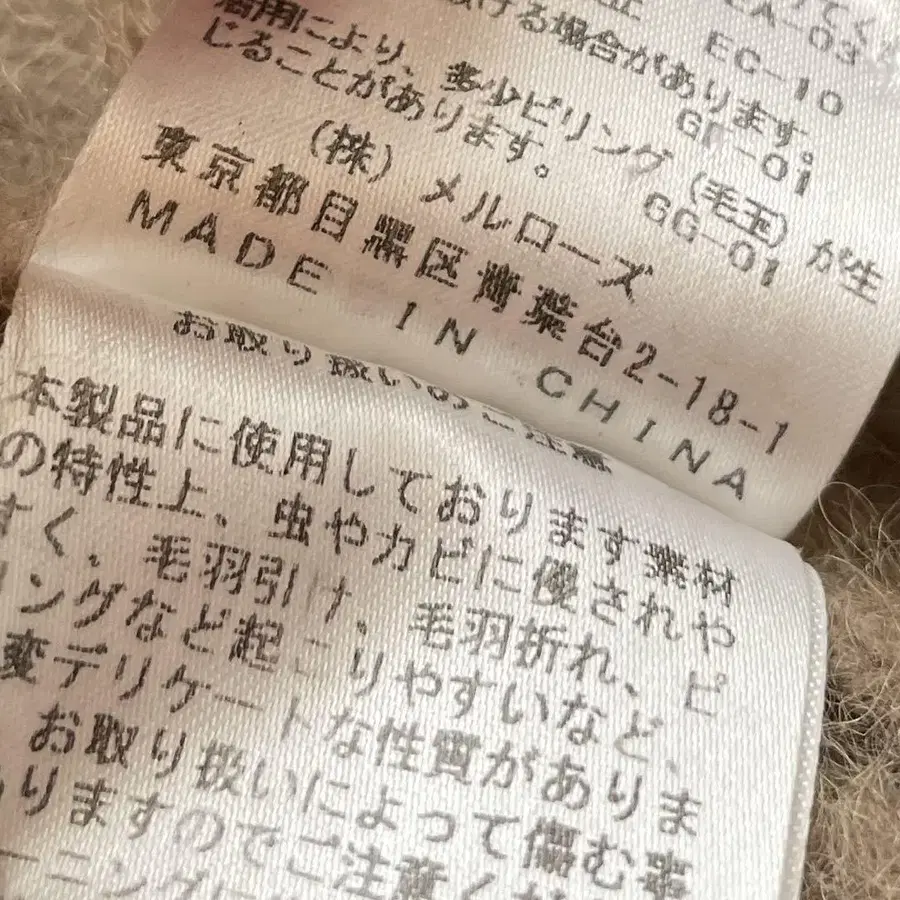 てく
EA-03
EC-10
ける場合があります。
GF-01
着用により、多少ピリング(毛玉)が生
じることがあります。
GG-01
(株)メルローズ
東京都目黒区青葉台2-18-1
MADE IN CHINA
お取り扱いのご注意
本製品に使用しております素材
の特性上、虫やカビに侵されや
すく、毛羽引け、毛羽折れ、ピ
リングなど起こりやすいなど、
変デリケートな性質がありま
お取り扱いによって傷む事
ありますのでご注意くだ
ーニング